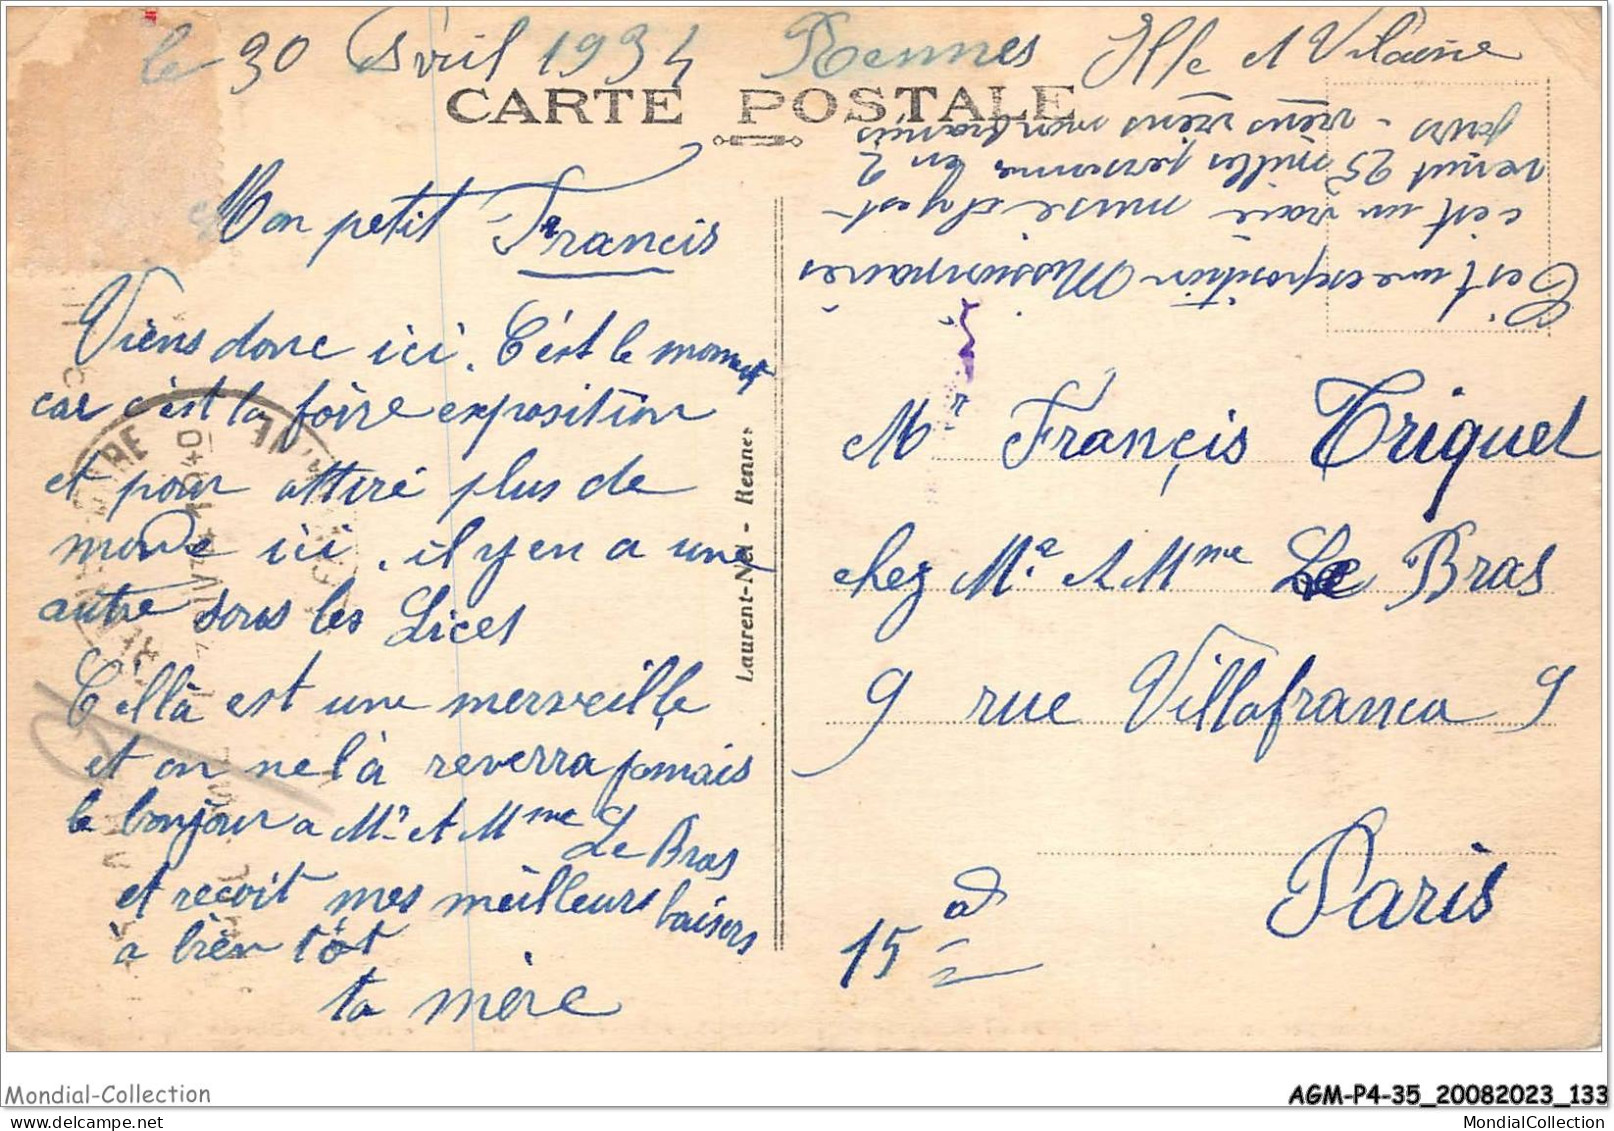 le 30 Avril 1934 Rennes Ille et Vilaine
CARTE POSTALE
Mon petit Francis
Viens donc ici. C'est le moment
car c'est la foire exposition
et pour attiré plus de
monde ici, il y en a une
autre sous les Lices
Cellà est une merveille
et on ne là reverra jamais
le bonjour a Mr et Mme Le Bras
et reçoit mes meilleurs baisers
à bien tôt
ta mère
C'est une exposition Missionnaires
c'est un vraie musé
venut 25 milles personne en 2
jours - viens viens mon Francis
Laurent-Nel - Rennes
Mr Françis Triquet
chez Mr et Mme Le Bras
9 rue Villafranca 9
Paris
15
Mondial-Collection
AGM-P4-35_20082023_133
MondialCollection